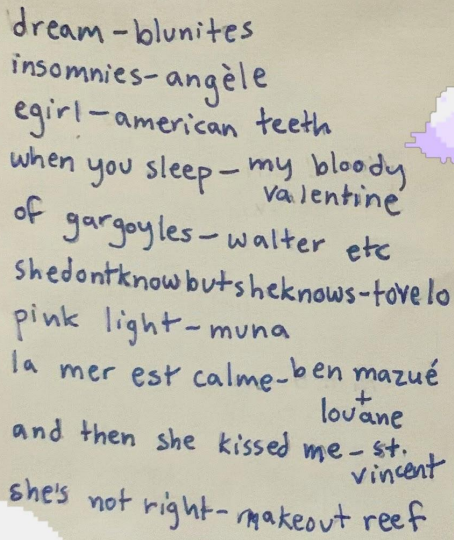 dream - blunites
insomnies - angèle
egirl - american teeth
when you sleep - my bloody
valentine
of gargoyles - walter etc
shedontknowbutsheknows - tove lo
pink light - muna
la mer est calme - ben mazué
+
louane
and then she kissed me - st.
vincent
she's not right - makeout reef